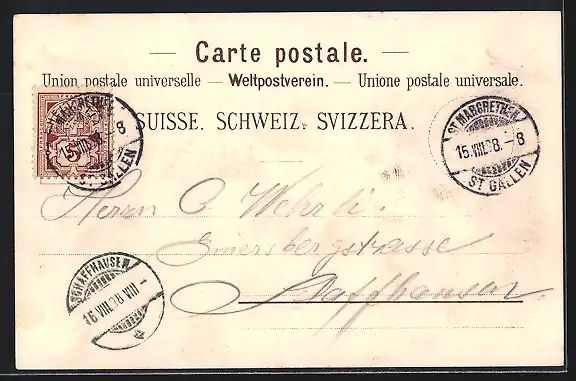 — Carte postale. —
Union postale universelle — Weltpostverein. — Unione postale universale.
SUISSE. SCHWEIZ. SVIZZERA.
ST MARGRETHEN
15.VIII.98.–8
ST GALLEN
5
–8
ST GALLEN
Herrn C. Wehrli.
Emmersbergstrasse
Schaffhausen
SCHAFFHAUSEN
16 VIII 98 VIII –